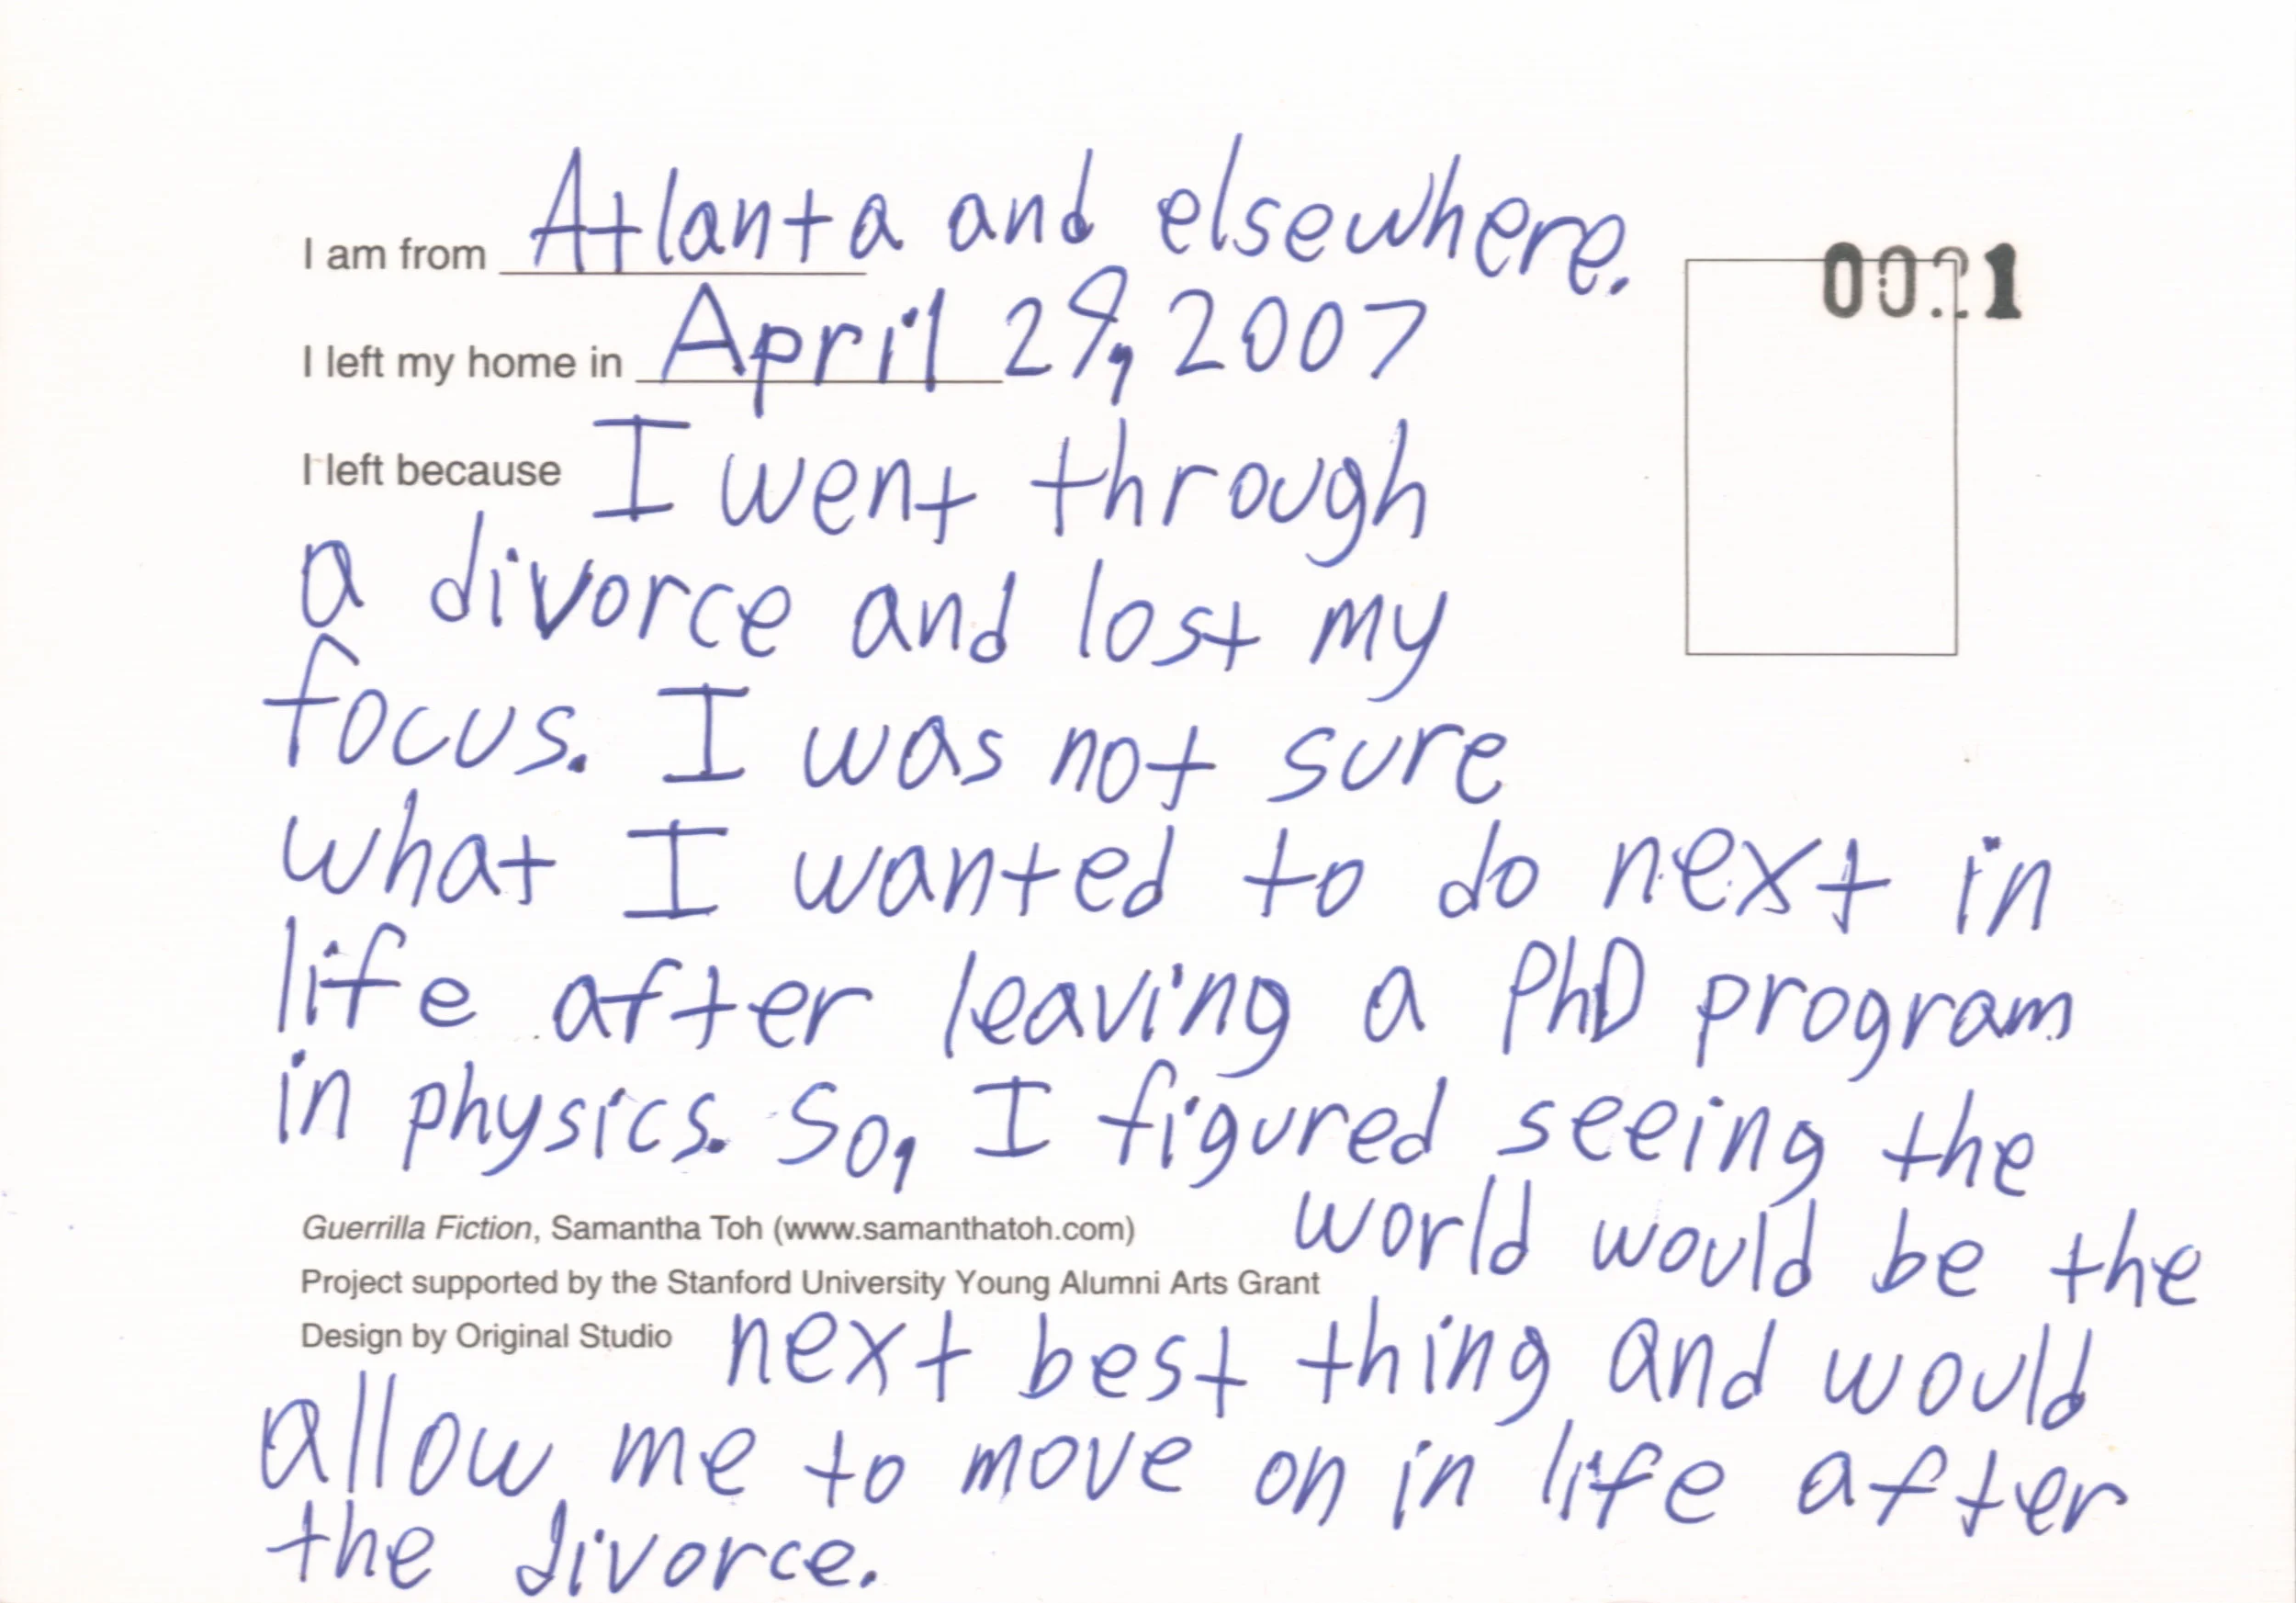 I am from Atlanta and elsewhere.
0021
I left my home in April 29, 2007
I left because I went through
a divorce and lost my
focus. I was not sure
what I wanted to do next in
life after leaving a PhD program
in physics. So, I figured seeing the
Guerrilla Fiction, Samantha Toh (www.samanthatoh.com) world would be the
Project supported by the Stanford University Young Alumni Arts Grant
Design by Original Studio next best thing and would
allow me to move on in life after
the divorce.